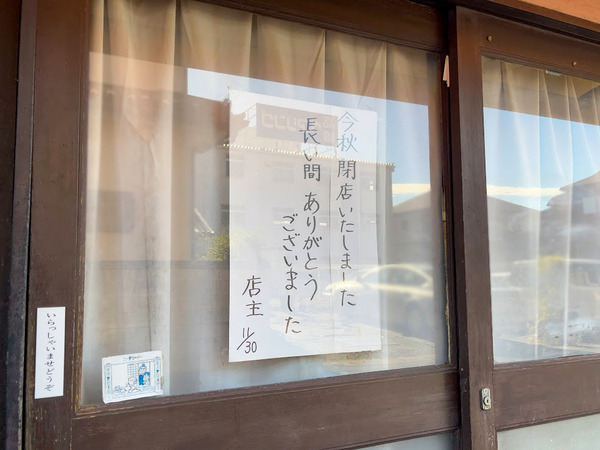 今秋閉店いたしました
長い間 ありがとう
ございました
店主
11/30
いらっしゃいませどうぞ